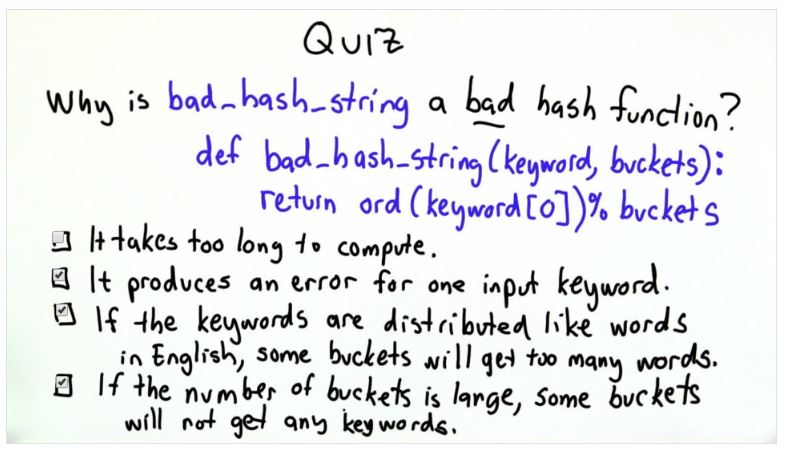 Quiz
Why is bad_hash_string a bad hash function?
def bad_hash_string(keyword, buckets):
return ord(keyword[0])% buckets
It takes too long to compute.
It produces an error for one input keyword.
If the keywords are distributed like words
in English, some buckets will get too many words.
If the number of buckets is large, some buckets
will not get any keywords.